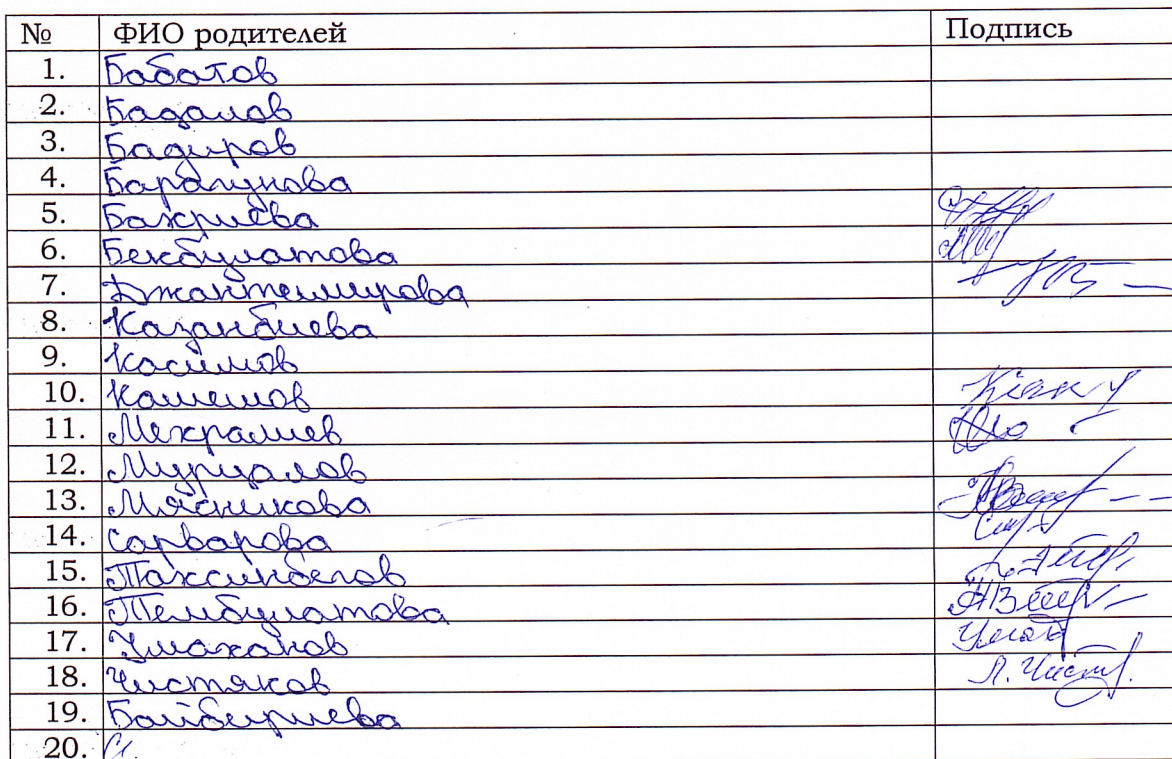 № ФИО родителей Подпись
1. Бабатов
2. Бадалов
3. Бадиров
4. Барагунова
5. Бахриева
6. Бекбулатова
7. Джантемирова
8. Казанбиева
9. Касимов
10. Кашешов
11. Мехралиев
12. Мурцалов
13. Мясникова
14. Сарварова
15. Тахсинбегов
16. Тембулатова
17. Умаханов
18. Чистяков
19. Байбириева
20.